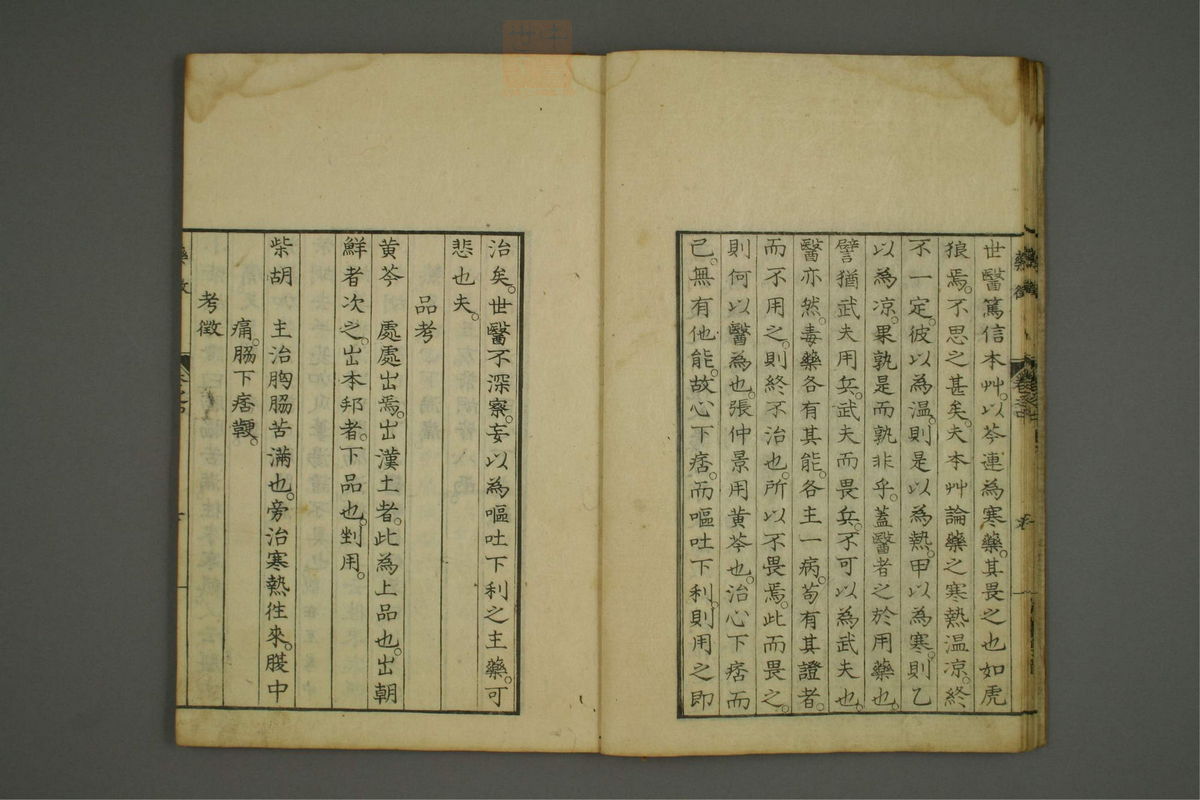 世醫篤信本艸。以芩連為寒藥。其畏之也如虎
狼焉。不思之甚矣。夫本艸論藥之寒熱温凉。終
不一定。彼以為温。則是以為熱。甲以為寒。則乙
以為凉。果孰是而孰非乎。蓋醫者之於用藥也。
譬猶武夫用兵。武夫而畏兵。不可以為武夫也。
醫亦然。毒藥各有其能。各主一病。苟有其證者。
而不用之。則終不治也。所以不畏焉。此而畏之。
則何以醫為也。張仲景用黄芩也。治心下痞而
已。無有他能。故心下痞。而嘔吐下利。則用之即
治矣。世醫不深察。妄以為嘔吐下利之主藥。可
悲也夫。
品考
黄芩 處處出焉。出漢土者。此為上品也。出朝
鮮者次之。出本邦者。下品也。剉用。
柴胡 主治胸脇苦滿也。旁治寒熱徃來。腹中
痛。脇下痞鞕。
考徵